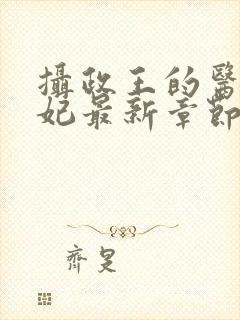 攝政王的醫
妃最新章節
齊旻